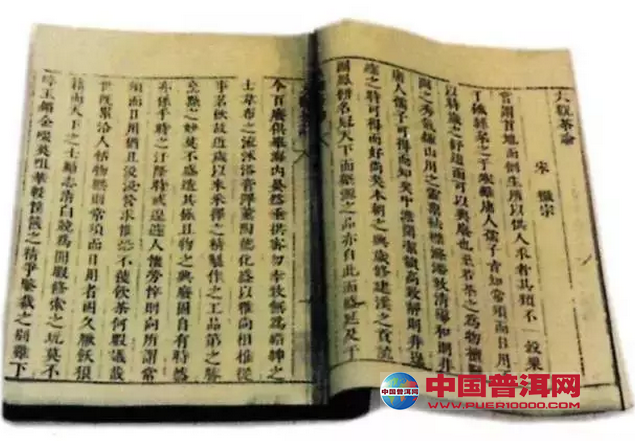 大觀茶論
宋 徽宗
嘗謂首地而倒生所以供人求者其類不一穀粟之
於飢絲枲之於寒雖庸人孺子皆知常須而日用不
以歲時之舒迫而可以興廢也至若茶之為物擅甌
閩之秀氣鍾山川之靈稟祛襟滌滯致清導和則非
庸人孺子可得而知矣沖澹閒潔韻高致靜則非遑
遽之時可得而好尚矣本朝之興歲修建溪之貢龍
團鳳餅名冠天下而壑源之品亦自此而盛延及于
今百廢俱舉海內晏然垂拱密勿幸致無為縉紳之
士韋布之流沐浴膏澤薰陶德化盛以雅尚相推從
事茗飲故近歲以來採擇之精製作之工品第之勝
烹點之妙莫不盛造其極且物之興廢固自有時然
亦係乎時之汙隆時或遑遽人懷勞悴則向所謂常
須而日用猶且汲汲營求惟恐不獲飲茶何暇議哉
世既累洽人恬物熙則常須而日用者固久厭飫狼
籍而天下之士勵志清白競為閒暇修索之玩莫不
碎玉鏘金啜英咀華較筐篋之精爭鑒裁之別雖下
中国普洱网
中国普洱网
WWW.PUER10000.COM